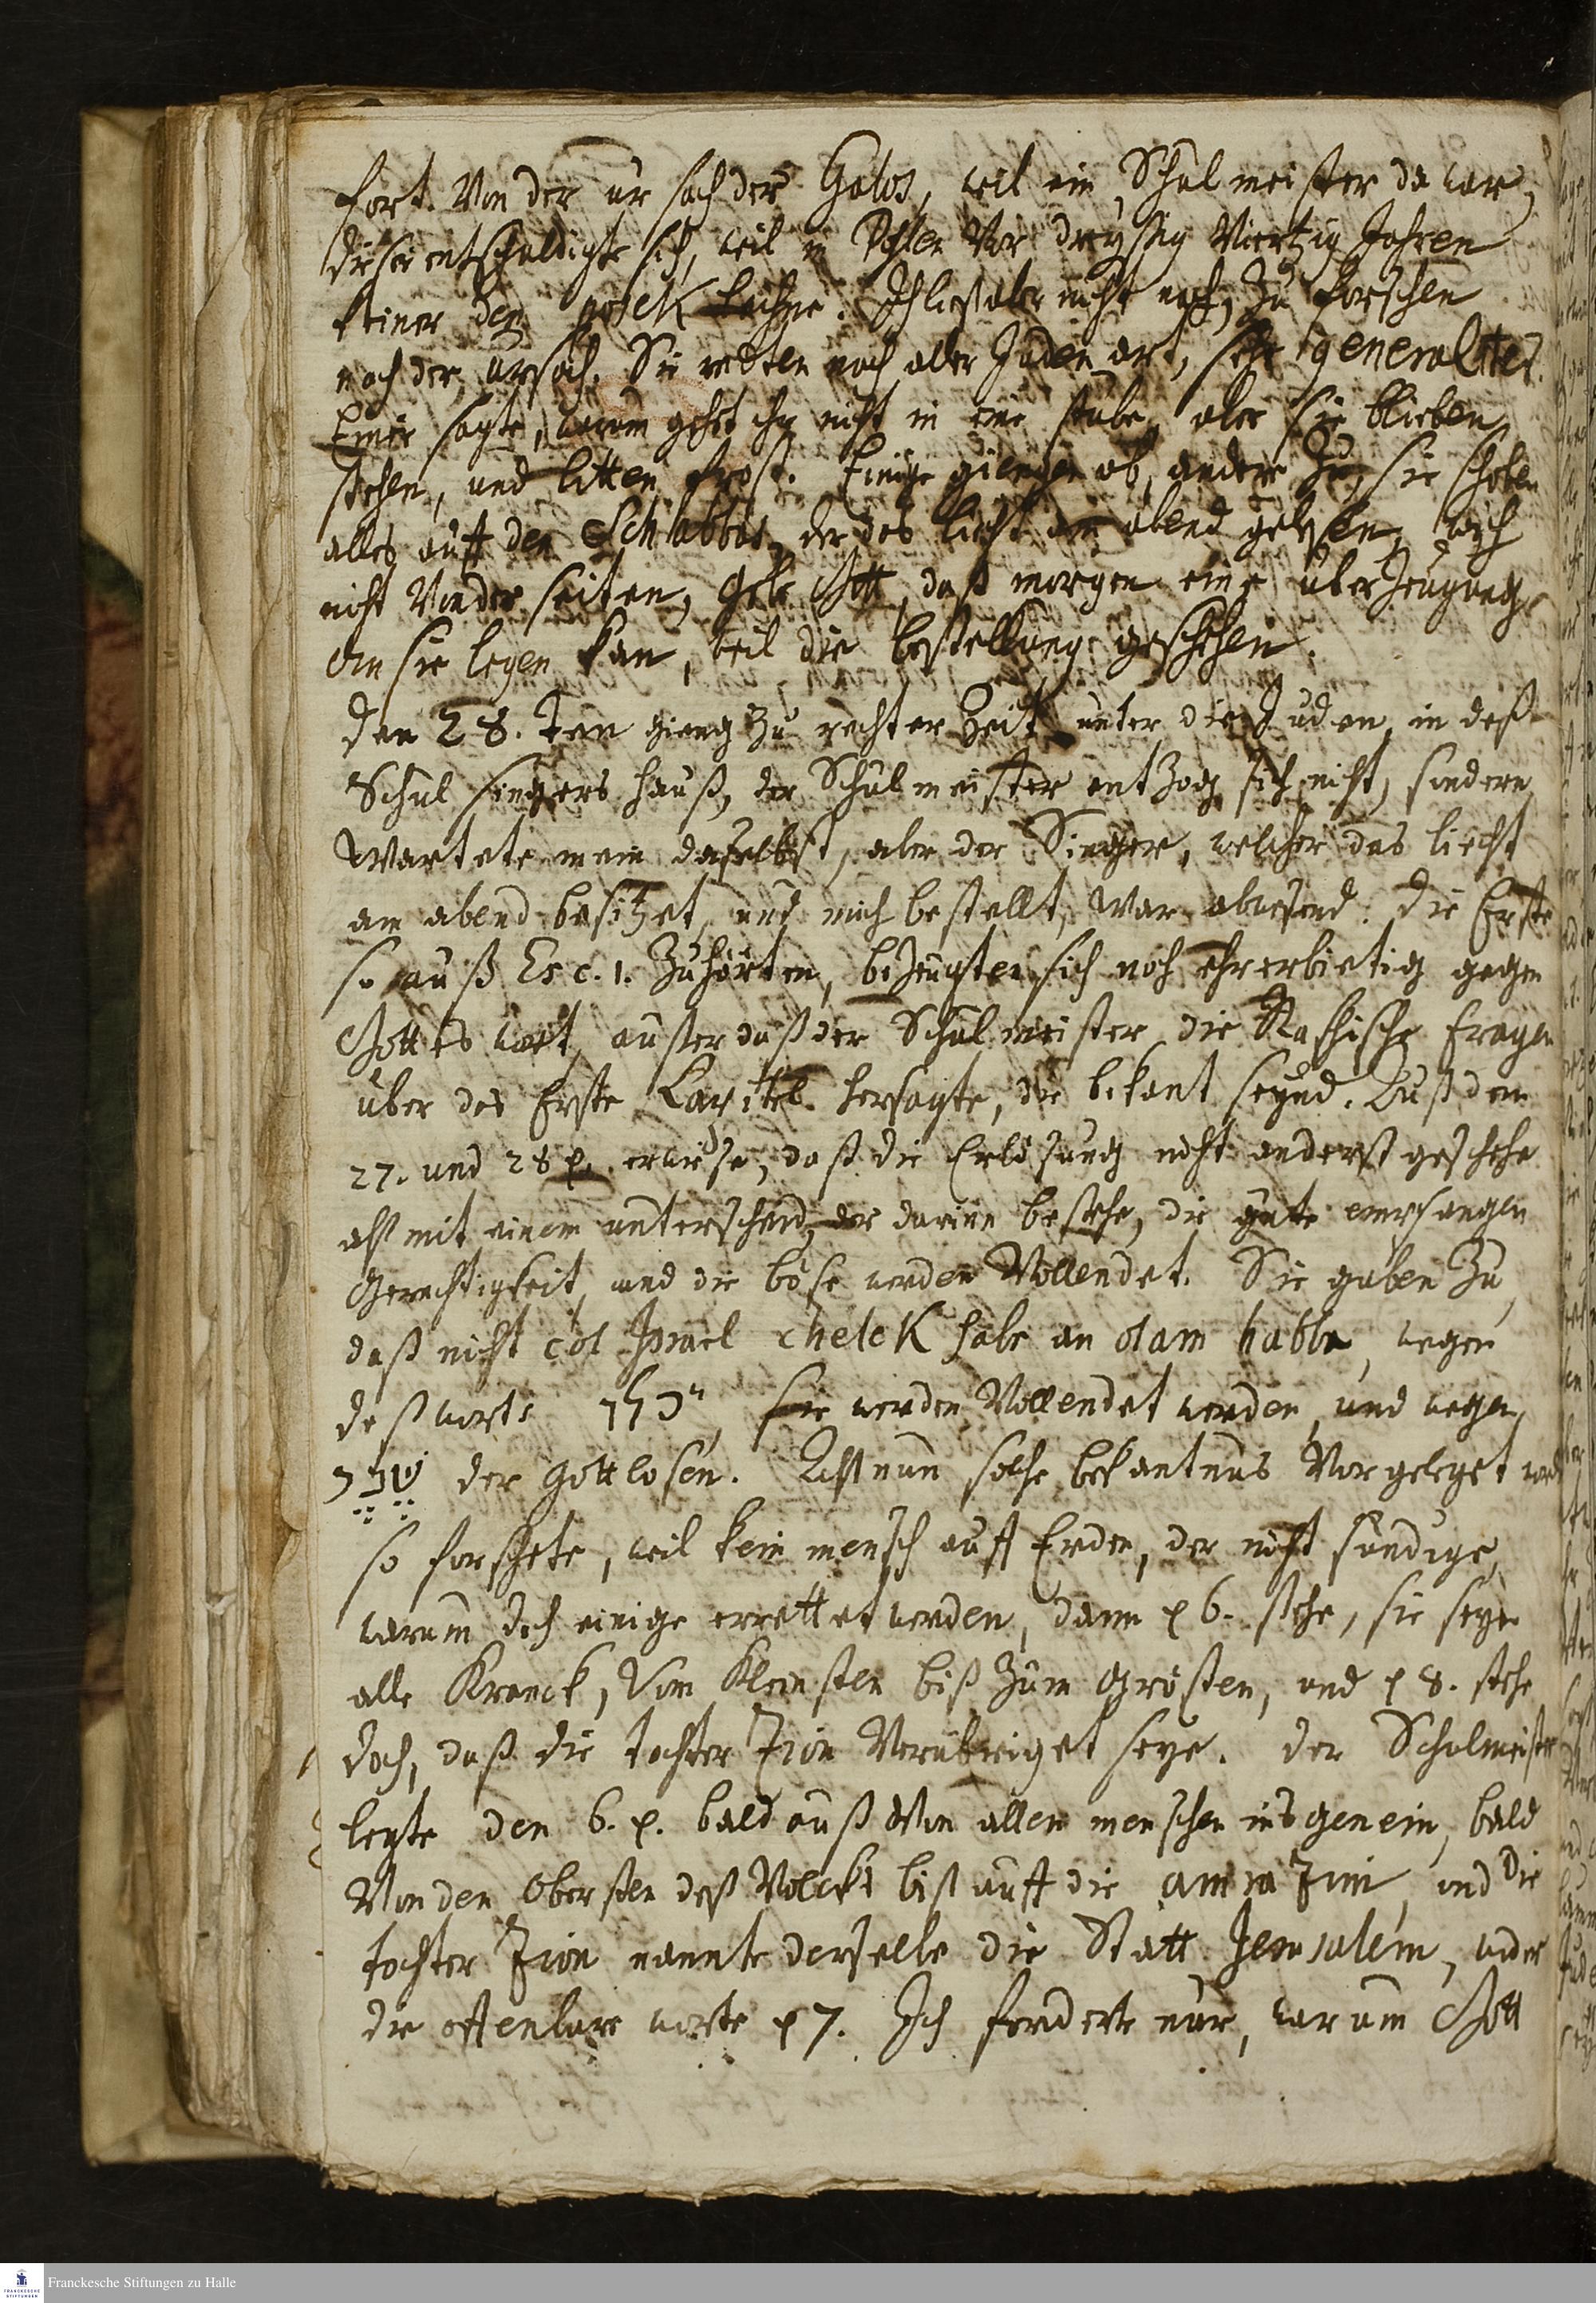 fort. Von der ur sach der Galos, weil ein Schulmeister da war,
dieser entschuldigte sich, weil in Pohlen vor dreyßig Viertzig Jahren
keiner den posek lerne. Ich ließ aber nicht nach, zu forschen
nach der ursach. Sie redten nach aller Juden art, sehr generalites.
Einer sagte, warum gehet ihr nicht in eine stube, aber sie blieben
stehen, und litten frost. Einige giengen ab, andere zu, sie schoben
alles auff den Schabbas, der das liecht am abend
nicht Von der seiten, Gebe Gott, daß morgen eine überzeugung
an sie legen kan, weil die bestellung geschehen.
Den 28.ten gieng zu rechter Zeit unter die Juden, in deß
Schul singers hauß, der Schulmeister entzog sich nicht, sondern
Wartete mein daselbst, aber der Singer, welcher das liecht
am abend besitzet, und mich bestellt, war abwesend. Die Erste
so auß Es c. 1. Zuhörten, bezeugten sich noch ehrerbietig gegen
Gottes wort, außer daß der Schulmeister die Raschische fragen
über das Erste Capitel hersagte, die bekant seynd. Auß dem
27. und 28 ℣. erwiese, daß die Erlösung nicht anderst geschehe
alß mit einem unterscheid, der darinn bestehe, die gute empfangen
Gerechtigkeit, und die böse werden Vollendet. Sie gaben zu,
daß nicht col Israel chelek habe an olam habba, wegen
deß worts יכלו, sie werden Vollendet werden, und wegen
שבר der Gottlosen. Alß nun solche bekantnus Vorgeleget
so forschete, weil kein mensch auff Erden, der nicht sündige,
warum doch einige errettet werden, dann ℣ 6. stehe, sie seyen
alle Kranck, Vom Kleinsten biß zum Grösten, und ℣ 8. stehe
doch, daß die tochter Zion Verübriget seye. Der Schulmeister
legte den 6. ℣. bald auß Von allen menschen ins gemein, bald
Von den Obersten deß Volcks biß auff die amrazim, und die
tochter Zion nannte derselbe die Statt Jerusalem, wider
die offenbare worte ℣ 7. Ich forderte nur, warum Gott
Franckesche Stiftungen zu Halle